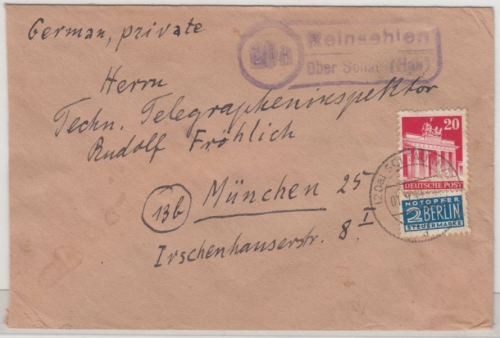 German, private
Reinsehlen
über Soltau (Han)
Herrn
Techn. Telegrapheninspektor
Rudolf Fröhlich
13b
München 25
Irschenhauserstr. 8 I
20
DEUTSCHE POST
NOTOPFER
2 BERLIN
STEUERMARKE